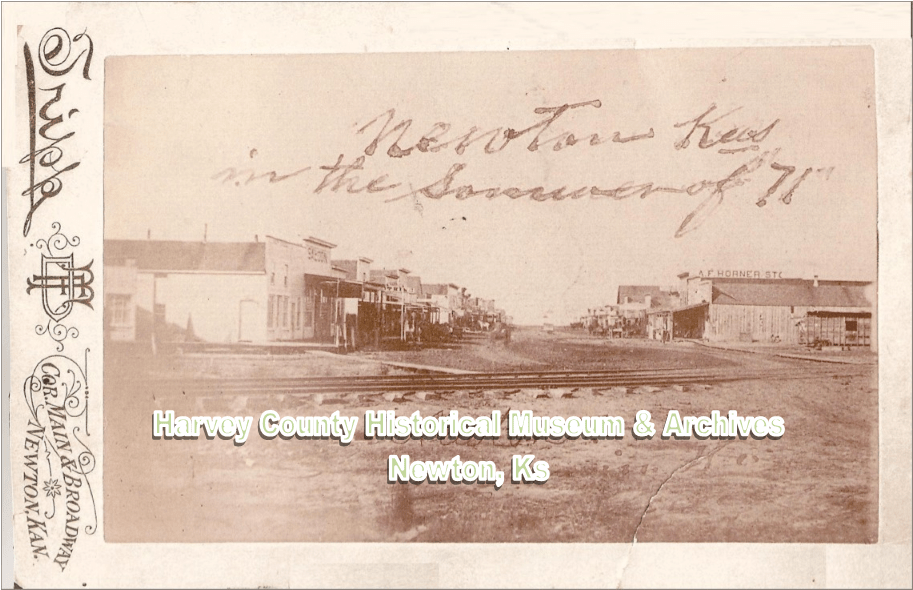 Newton Kas
in the Sommer of "71"
A. F HORNER STO
Tripp
COR. MAIN & BROADWAY
NEWTON, KAN.
Harvey County Historical Museum & Archives
Newton, Ks